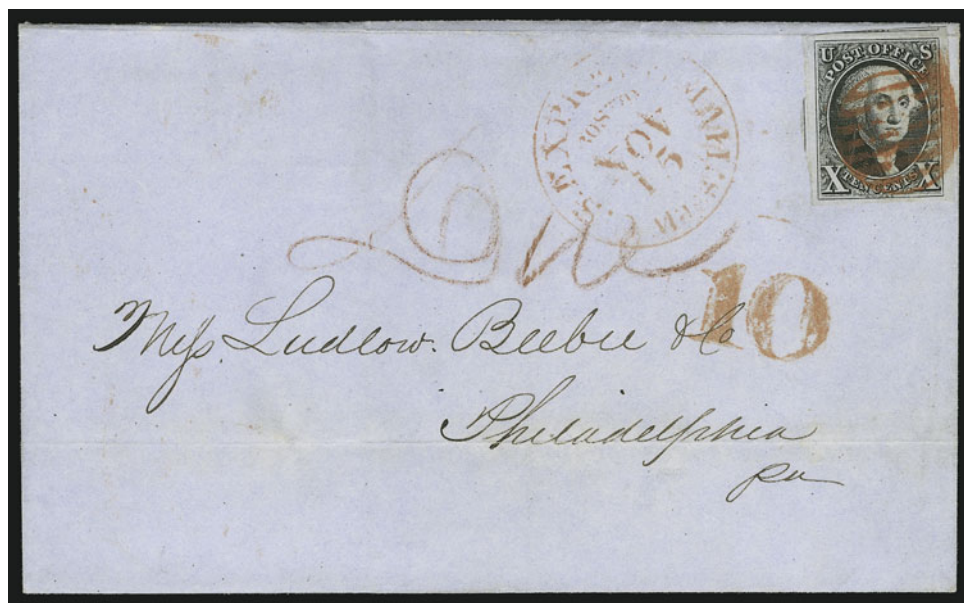 U S
POST OFFICE
X TEN CENTS X
U.S. EXPRESS MAIL
BOSTON
NOV
Due
10
Mess. Ludlow. Beebee & Co
Philadelphia
Pa